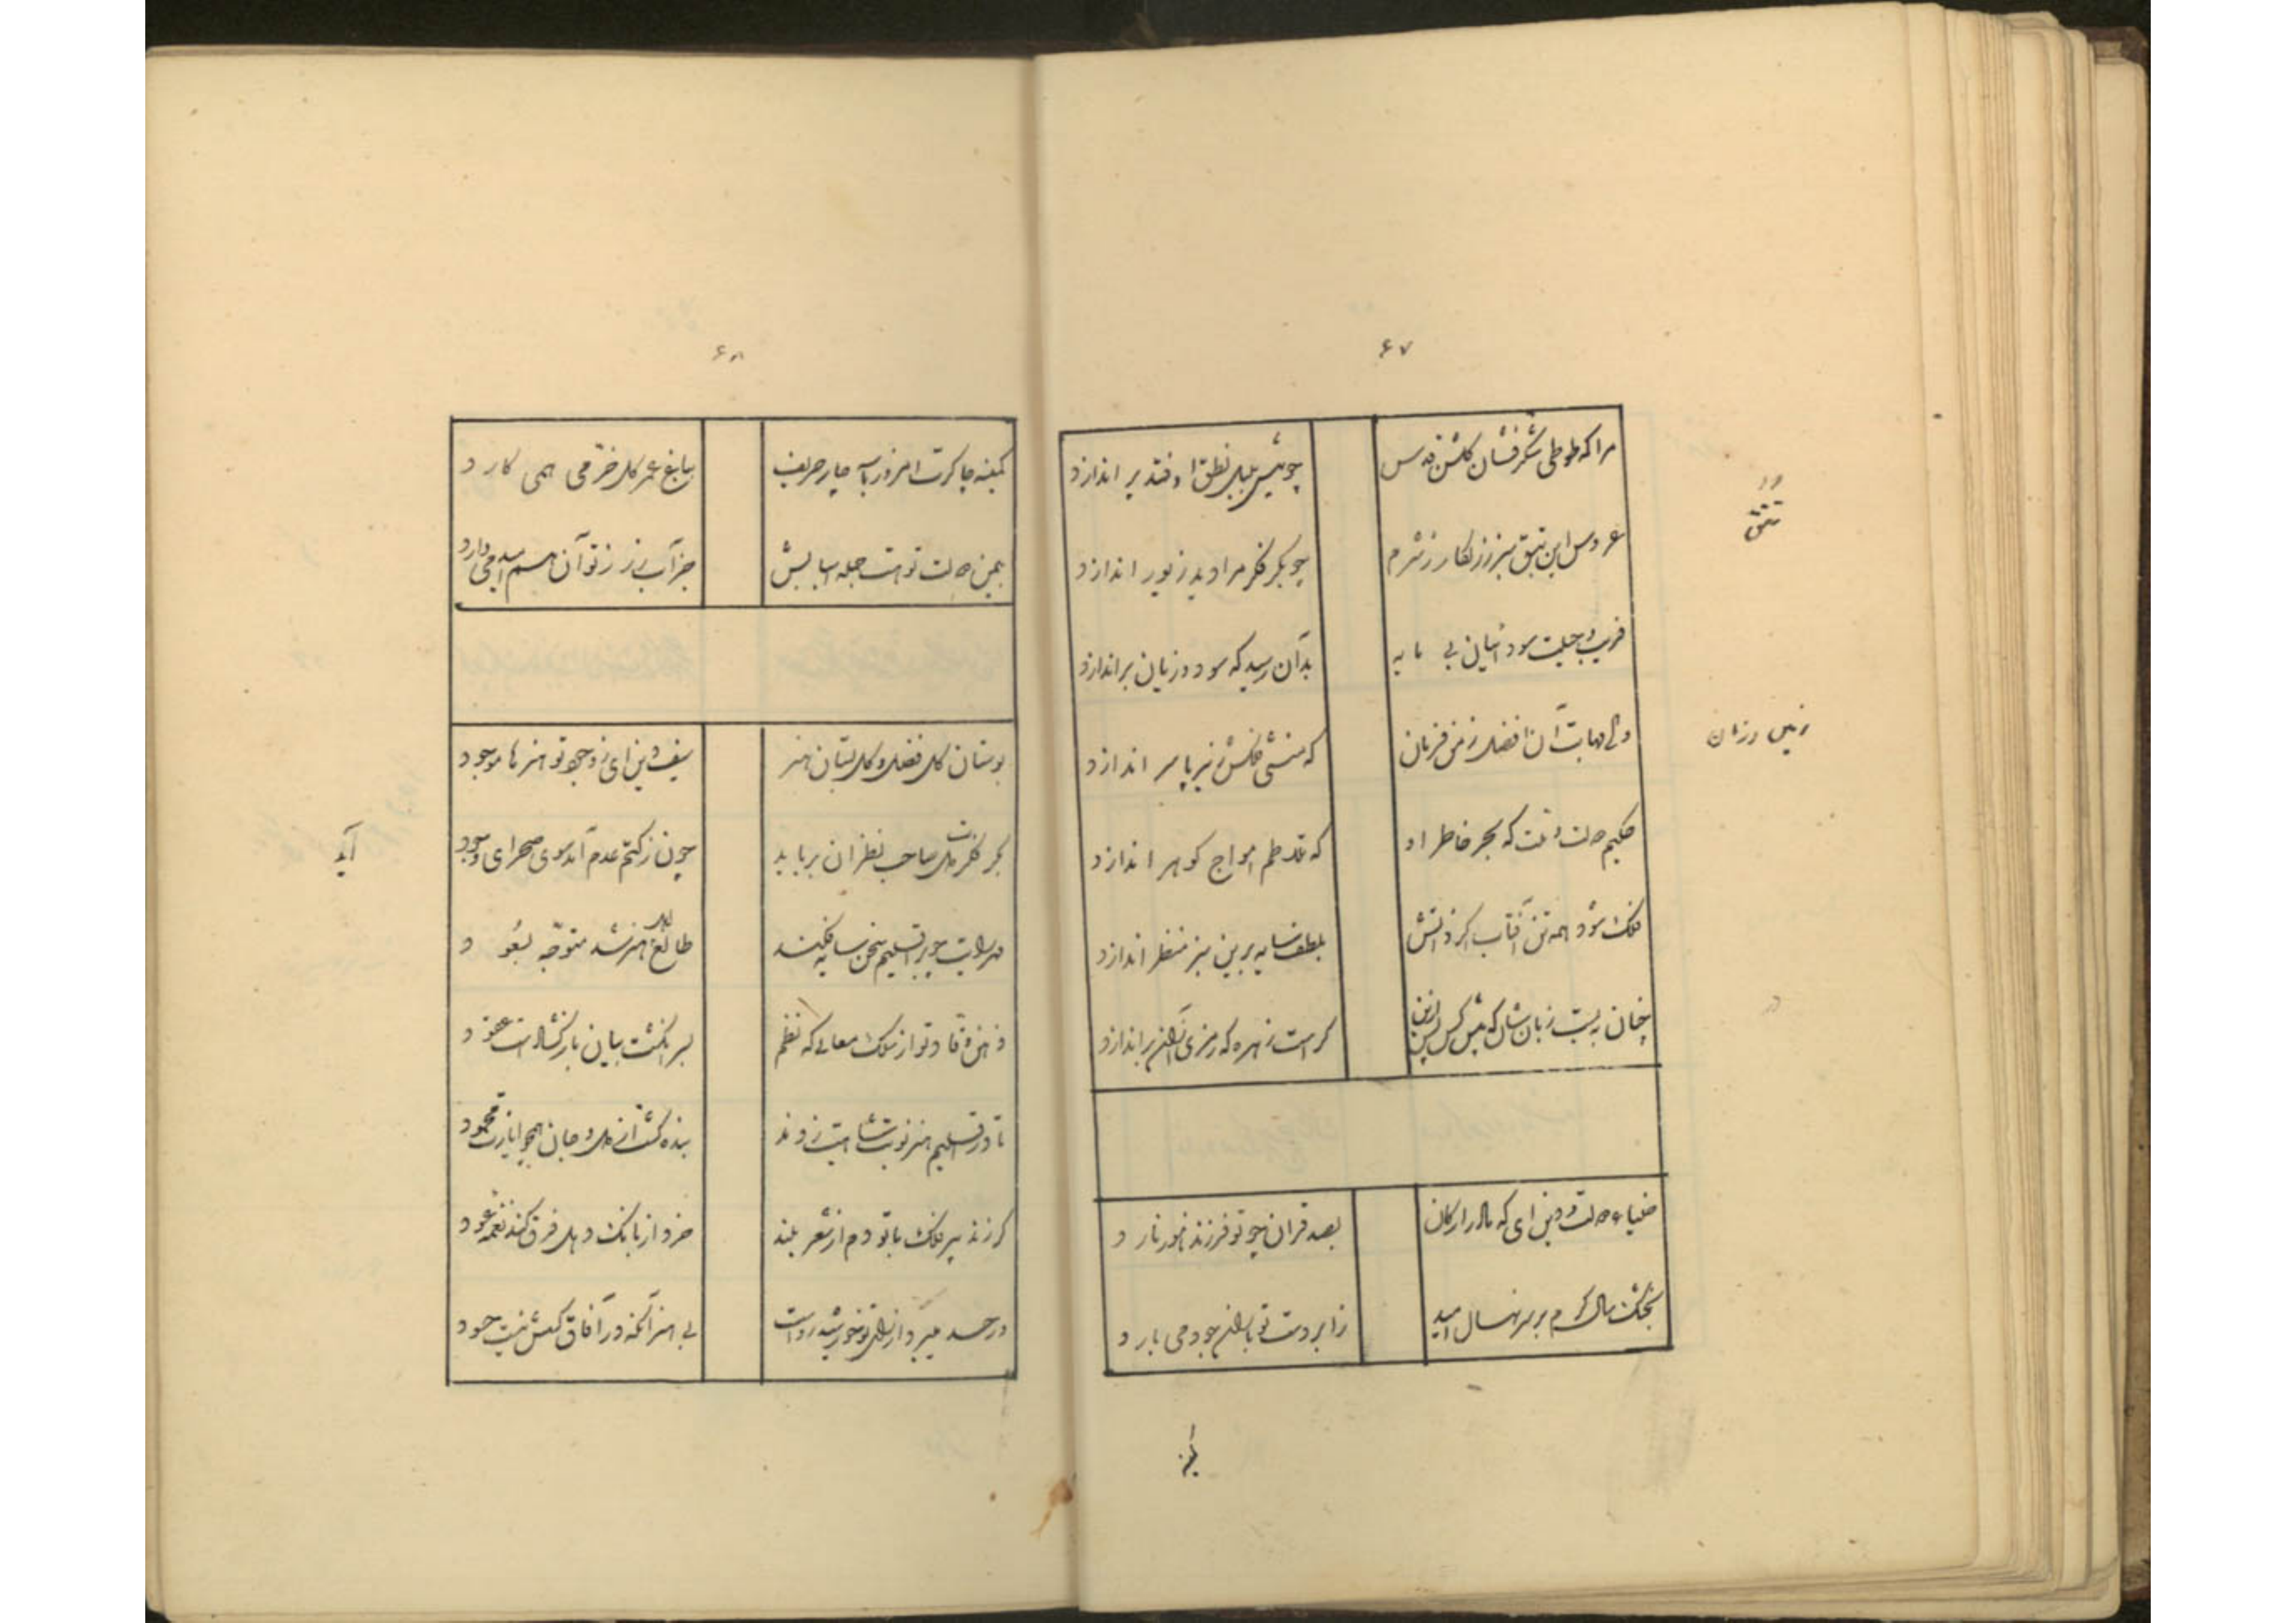 ۶۷
مرا که طوطی شکرفشان گلشن قدس
چو پیش بلبل نطق اوفتد پر اندازد
تتق
عروس این تتق سبز زرنگار ز شرم
چو بکر فکر مرا دید زیور اندازد
فریب و حیلت سودائیان بی مایه
بدان رسید که سود و زیان براندازد
زمین و زمان
والی مهابت آن افضل زمن فرمان
که منشی فلکش زیر پا سر اندازد
حکیم ملت و ملت که بحر خاطر او
که تلاطم امواج گوهر اندازد
فلک شود همه تن آفتاب اگر ذاتش
بلطف سایه برین سبز منظر اندازد
چنان به بست زبان شان که پیش کس پس ازین
کراست زهره که رمزی از آن براندازد
ضیاء ملت و دین ای که مادر ارکان
بصد قران چو تو فرزند نامور نارد
بخشک سال کرم بر سر نهال امید
ز ابر دست تو باران جود می بارد
۶۸
کمینه چاکرت امروز با سه چار حریف
بباغ عمر گل خرّمی همی کارد
بیمن دولت تو هست جمله اسبابش
جز آب رز ز تو آن هم امید می دارد
بوستان گل فضل و گلستان هنر
سیف دین ای ز وجود تو هنرها موجود
آید
بکر فکرت دل صاحب نظران برباید
چون ز کتم عدم آمد سوی صحرای وجود
مهر رایت چو بر اقلیم سخن سایه فکند
طالع اهل هنر شد متوجّه بسعود
ذهن وقّاد تو از ملک معانی که نظم
بسر انگشت بیان بازگشادست عقود
تا در اقلیم هنر نوبت شاهیت زدند
بنده گشت از دل و جان همچو ایازت محمود
گر زند پیر فلک با تو دم از شعر بلند
خرد از بانگ دهل فرق کند نغمه عود
در حسد میرد از رای تو خورشید رواست
بی هنر آنکه در آفاق کسش نیست حسود